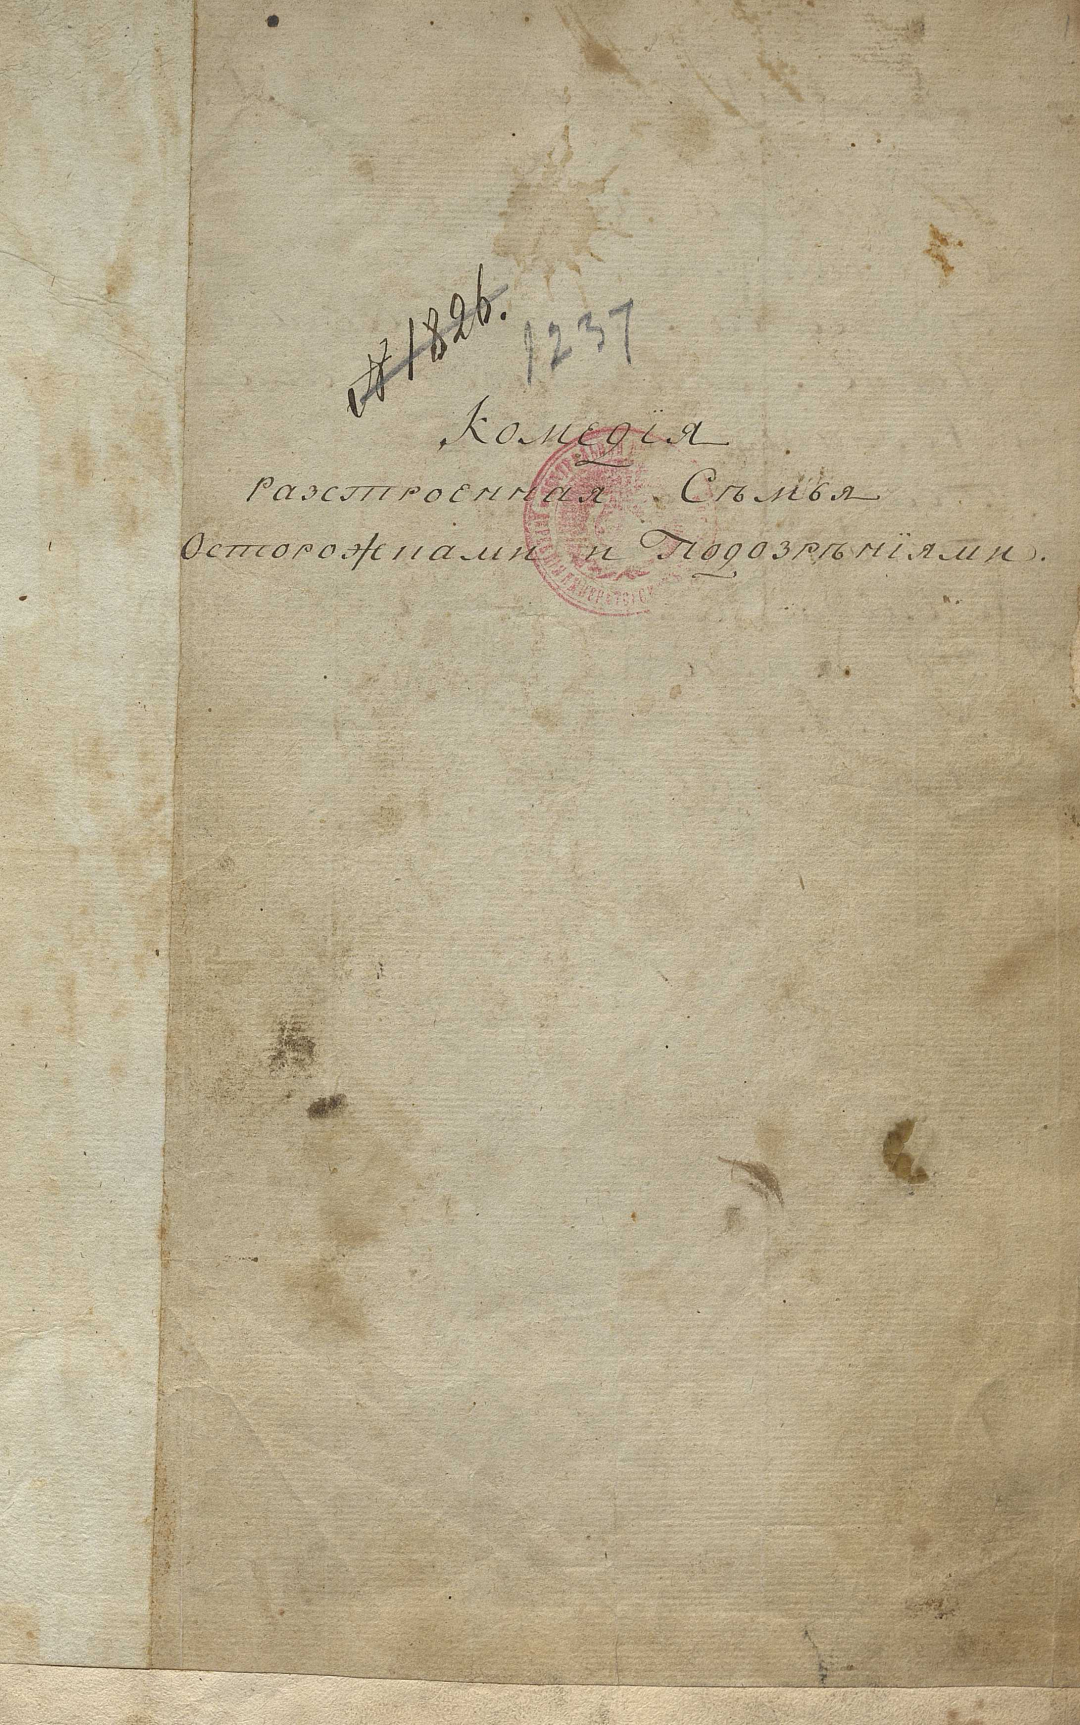 № 1826.
1237
Комедїя
разстроенная Съмья
Осторожнами и Подозрѣнїями.